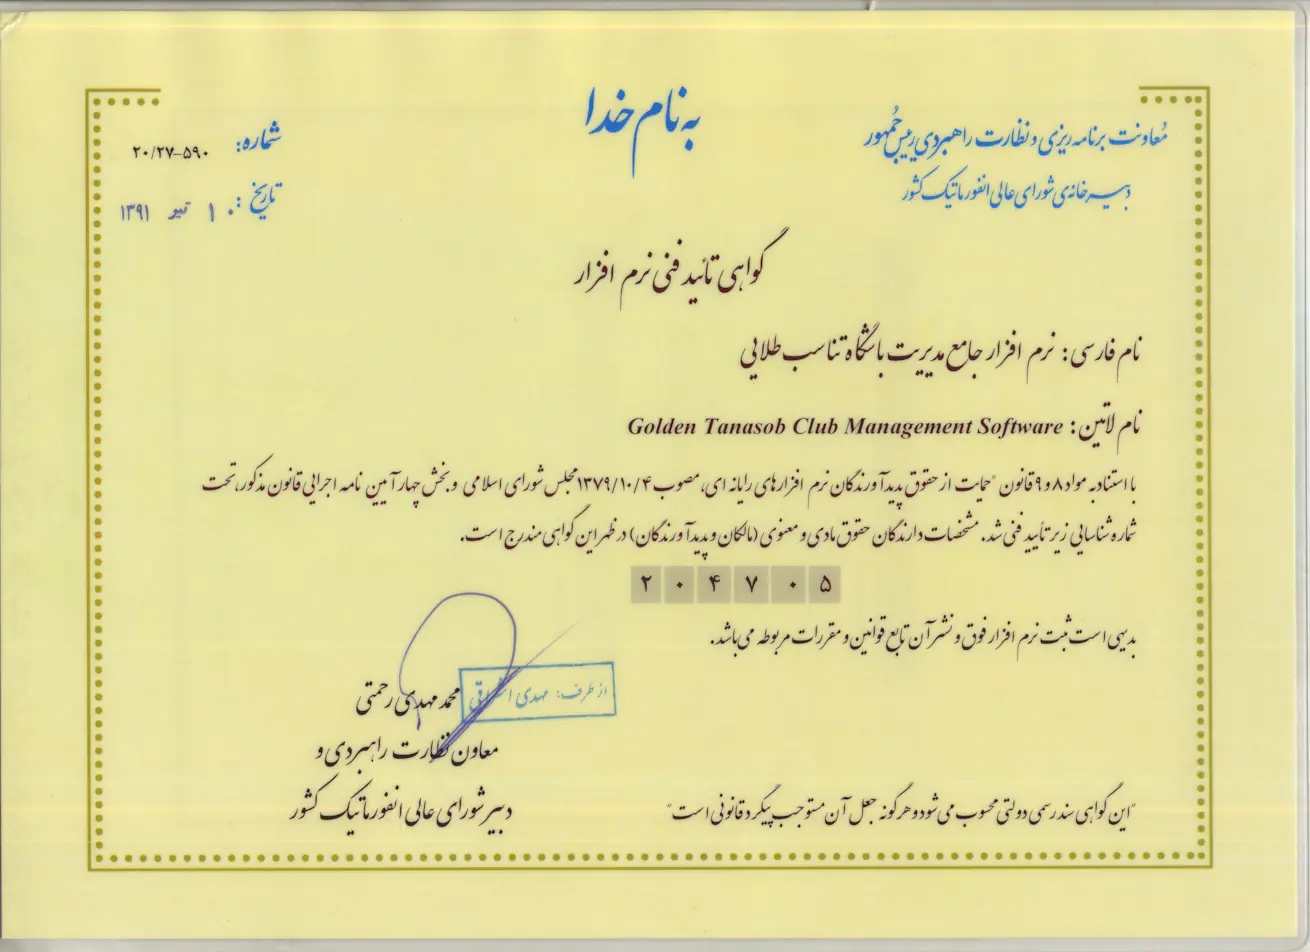 به نام خدا
معاونت برنامه ریزی و نظارت راهبردی رئیس جمهور
دبیرخانه‌ی شورای عالی انفورماتیک کشور
شماره: ۲۰/۲۷-۵۹۰
تاریخ: ۱۰ تیر ۱۳۹۱
گواهی تائید فنی نرم افزار
نام فارسی: نرم افزار جامع مدیریت باشگاه تناسب طلایی
نام لاتین: Golden Tanasob Club Management Software
با استناد به مواد ۸ و ۹ قانون "حمایت از حقوق پدیدآورندگان نرم افزارهای رایانه ای، مصوب ۱۳۷۹/۱۰/۴ مجلس شورای اسلامی و بخش چهار آیین نامه اجرایی قانون مذکور، تحت
شماره شناسایی زیر تأیید فنی شد. مشخصات دارندگان حقوق مادی و معنوی (مالکان و پدیدآورندگان) در ظهر این گواهی مندرج است.
۲ ۰ ۴ ۷ ۰ ۵
بدیهی است ثبت نرم افزار فوق و نشر آن تابع قوانین و مقررات مربوطه می‌باشد.
از طرف: مهدی
محمد مهدی رحمتی
معاون نظارت راهبردی و
دبیر شورای عالی انفورماتیک کشور
"این گواهی سند رسمی دولتی محسوب می شود و هرگونه جعل آن مستوجب پیگرد قانونی است"